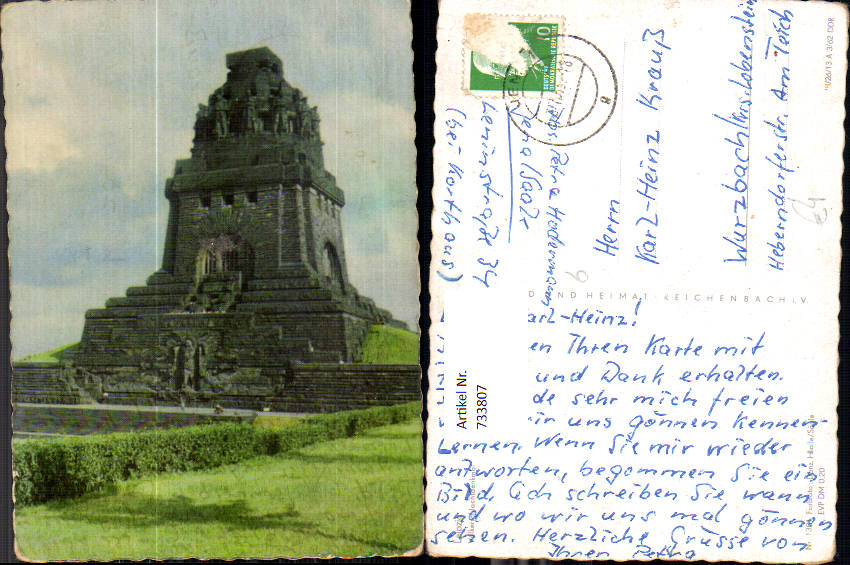 10
JENA
Lenins­traße 34
(bei Korthaus)
Jena/Saale
Petra
Herrn
Karl-Heinz Krauß
Wurzbach Krs. Lobenstein
Heberndorferstr. Am Teich
V/26/13 A 3/62 DDR
€4
6
D UND HEIMAT REICHENBACH I. V.
arl-Heinz!
en Ihren Karte mit
und Dank erhalten.
de sehr mich freien
ir uns gönnen kennen-
Lernen. Wenn Sie mir wieder
antworten, begommen Sie ein
Bild. Ich schreiben Sie wann
und wo wir uns mal gönnen
sehen. Herzliche Grüsse von
Ihren Petra
Artikel Nr.
733807
EVP DM 0.20